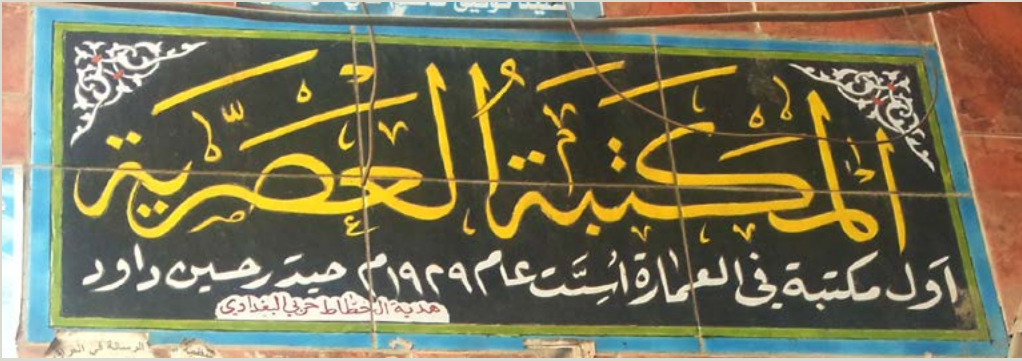 المكتبة العصرية
اول مكتبة في العمارة اسست عام ١٩٢٩م حيدر حسين داود
هدية الخطاط حربي البغدادي
الرسالة في العراق